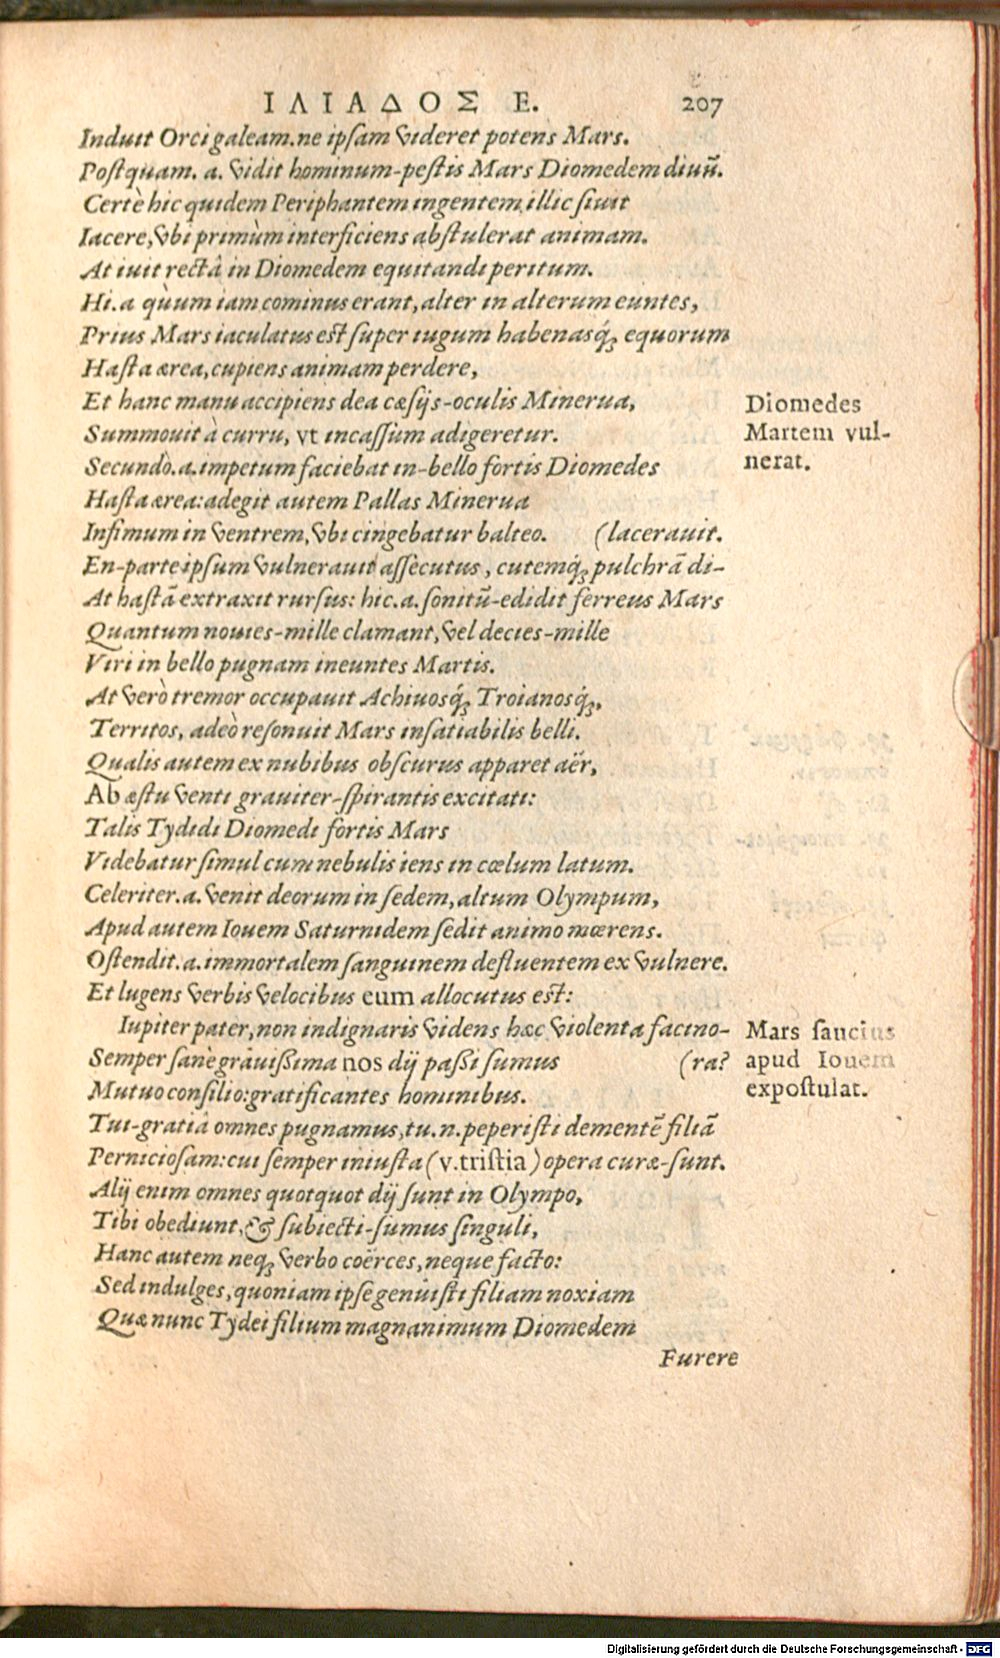 ΙΛΙΑΔΟΣ Ε. 207
Induit Orci galeam. ne ipsam videret potens Mars.
Postquam. a. vidit hominum-pestis Mars Diomedem diuū.
Certè hic quidem Periphantem ingentem illic siuit
Iacere, vbi primùm interficiens abstulerat animam.
At iuit rectâ in Diomedem equitandi peritum.
Hi. a quùm iam cominus erant, alter in alterum euntes,
Prius Mars iaculatus est super iugum habenasq́; equorum
Hasta ærea, cupiens animam perdere,
Et hanc manu accipiens dea cæsijs-oculis Minerua,
Summouit à curru, vt incassum adigeretur.
Secundò. a. impetum faciebat in-bello fortis Diomedes
Hasta ærea: adegit autem Pallas Minerua
Infimum in ventrem, vbi cingebatur balteo. (lacerauit.
En-parte ipsum vulnerauit assecutus, cutemq́; pulchrā di-
At hastā extraxit rursus: hic. a. sonitū-edidit ferreus Mars
Quantum nouies-mille clamant, vel decies-mille
Viri in bello pugnam ineuntes Martis.
At verò tremor occupauit Achiuosq́; Troianosq́;,
Territos, adeò resonuit Mars insatiabilis belli.
Qualis autem ex nubibus obscurus apparet aër,
Ab æstu venti grauiter-spirantis excitati:
Talis Tydidi Diomedi fortis Mars
Videbatur simul cum nebulis iens in cœlum latum.
Celeriter. a. venit deorum in sedem, altum Olympum,
Apud autem Iouem Saturnidem sedit animo mœrens.
Ostendit. a. immortalem sanguinem defluentem ex vulnere.
Et lugens verbis velocibus eum allocutus est:
Iupiter pater, non indignaris videns hæc violenta facino-
Semper sanè grauißima nos dij paßi sumus (ra?
Mutuo consilio: gratificantes hominibus.
Tui-gratiâ omnes pugnamus, tu. n. peperisti dementē filiā
Perniciosam: cui semper iniusta (v. tristia) opera curæ-sunt.
Alij enim omnes quotquot dij sunt in Olympo,
Tibi obediunt, & subiecti-sumus singuli,
Hanc autem neq; verbo coërces, neque facto:
Sed indulges, quoniam ipse genuisti filiam noxiam
Quæ nunc Tydei filium magnanimum Diomedem
Furere
Diomedes
Martem vul-
nerat.
Mars saucius
apud Iouem
expostulat.
Digitalisierung gefördert durch die Deutsche Forschungsgemeinschaft - DFG